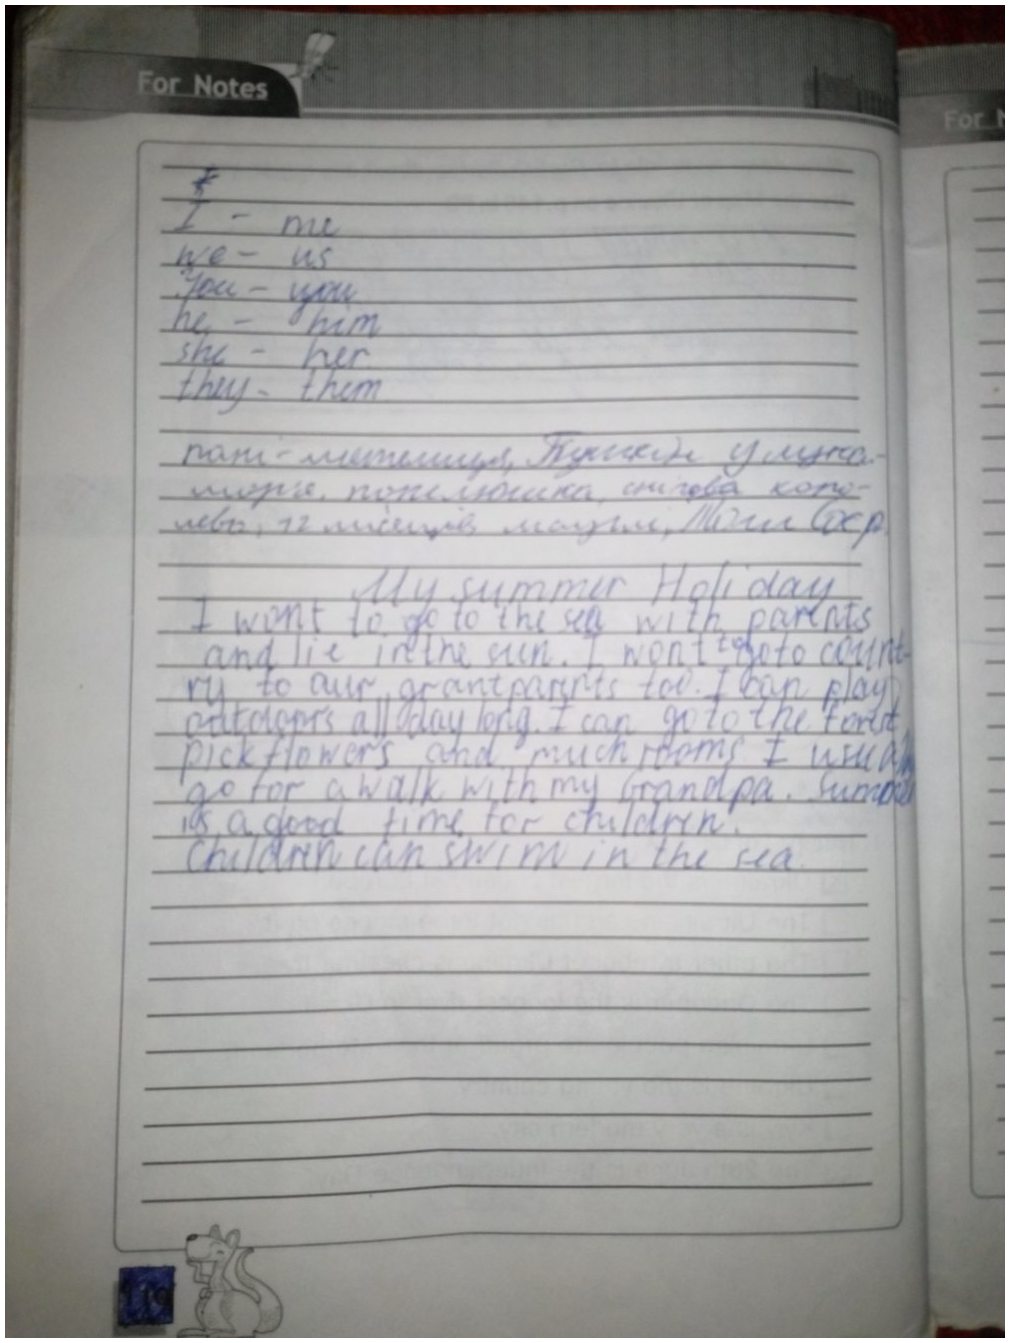 For Notes
For N
I - me
we - us
You - you
he - him
she - her
they - them
пані - метелиця, Пушкін У лука-
морje, попелюшка, снігова коро-
лева, 12 місяців,
My summer Holiday
I wont to go to the sea with parents
and lie in the sun. I wont to go to count-
ry to our grantparents too. I can play
outdoors all day long. I can go to the forest
pick flowers and muchrooms I usually
go for a walk with my Grandpa. Summer
is a good time for children.
Children can swim in the sea.